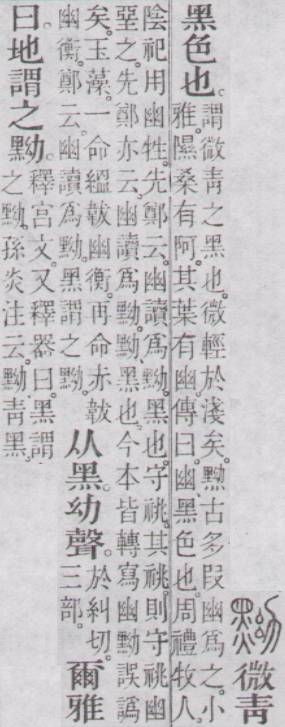 微青
黑色也。謂微青之黑也。微輕於淺矣。黝古多叚幽爲之。小
雅。隰桑有阿。其葉有幽。傳曰。幽、黑色也。周禮牧人
陰祀用幽牲。先鄭云。幽讀爲黝。黑也。守祧。其祧則守祧幽
堊之。先鄭亦云。幽讀爲黝。黝黑也。今本皆轉寫幽黝誤譌
矣。玉藻。一命縕韍幽衡。再命赤韍
幽衡。鄭云。幽讀爲黝。黑謂之黝。从黑。幼聲。於糾切。
三部。爾雅
曰。地謂之黝。釋宮文。又釋器曰。黑謂
之黝。孫炎注云。黝青黑。